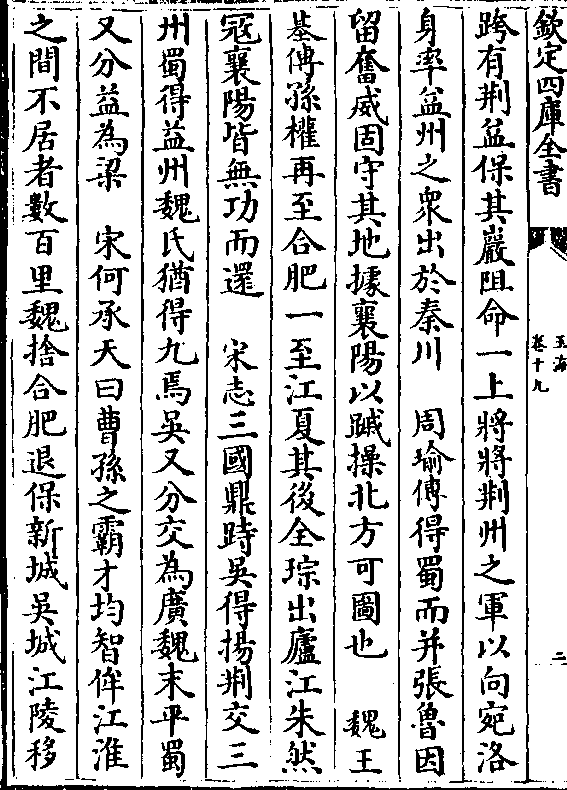 欽定四庫全書
玉海
卷十九
二
跨有荆益保其巖阻命一上將將荆州之軍以向宛洛
身率益州之衆出於秦川　周瑜傳得蜀而并張魯因
留奮威固守其地據襄陽以蹙操北方可圖也　魏王
基傳孫權再至合肥一至江夏其後全琮出廬江朱然
冦襄陽皆無功而還　宋志三國鼎跱吳得揚荆交三
州蜀得益州魏氏猶得九焉吳又分交為廣魏末平蜀
又分益為梁　宋何承天曰曹孫之霸才均智侔江淮
之間不居者數百里魏捨合肥退保新城吳城江陵移